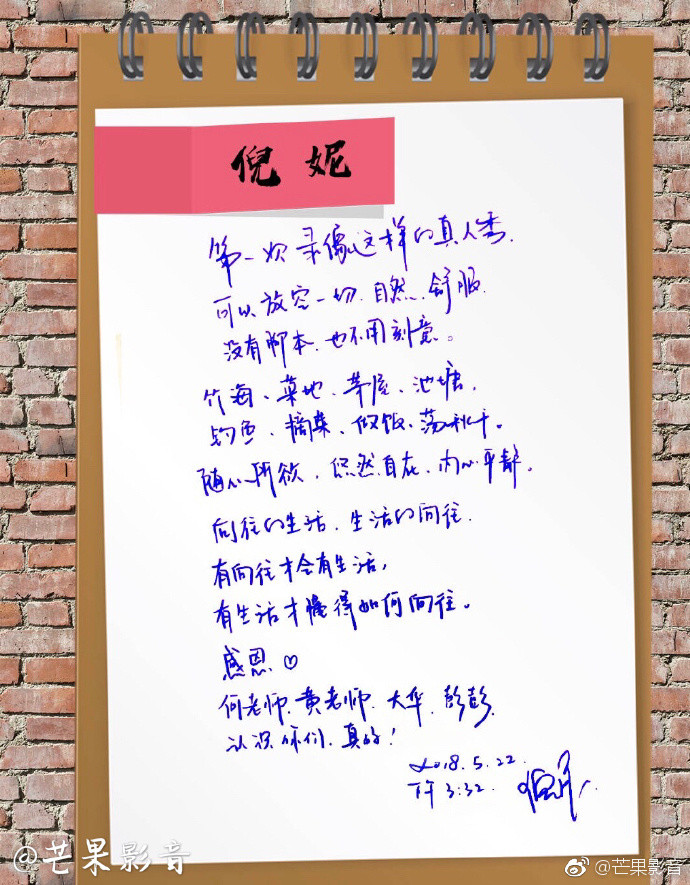 倪妮
第一次录像这样的真人秀.
可以放空一切.自然.舒服.
没有脚本.也不用刻意。
竹海、菜地、茅屋、池塘,
钓鱼、摘菜、做饭、荡秋千。
随心所欲.悠然自在.内心平静.
向往的生活.生活的向往.
有向往才会有生活,
有生活才懂得如何向往。
感恩♡
何老师.黄老师.大华.彭彭.
认识你们.真好!
2018.5.22.
下午3:32. 倪妮
@芒果影音
@芒果影音